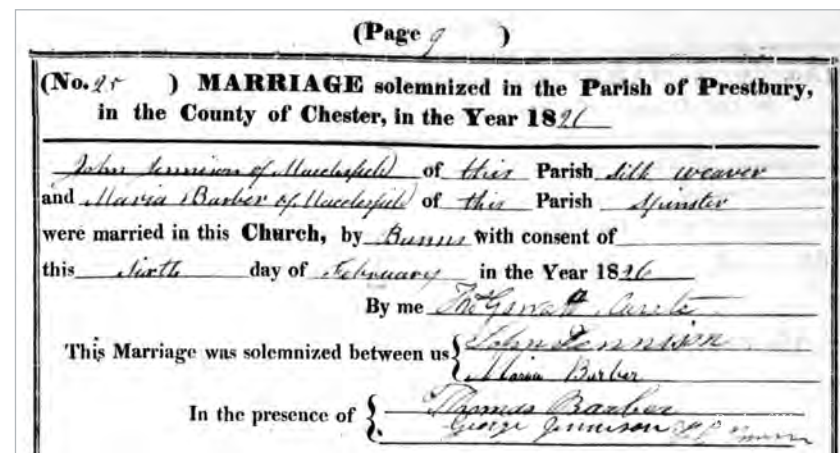 (Page 9 )
(No. 25 ) MARRIAGE solemnized in the Parish of Prestbury,
in the County of Chester, in the Year 1826
John Jennison of Macclesfield of this Parish Silk weaver
and Maria Barber of Macclesfield of this Parish Spinster
were married in this Church, by Banns with consent of
this Sixth day of February in the Year 1826
By me Curate
This Marriage was solemnized between us { John Jennison
Maria Barber
In the presence of { Thomas Barber
George Jennison